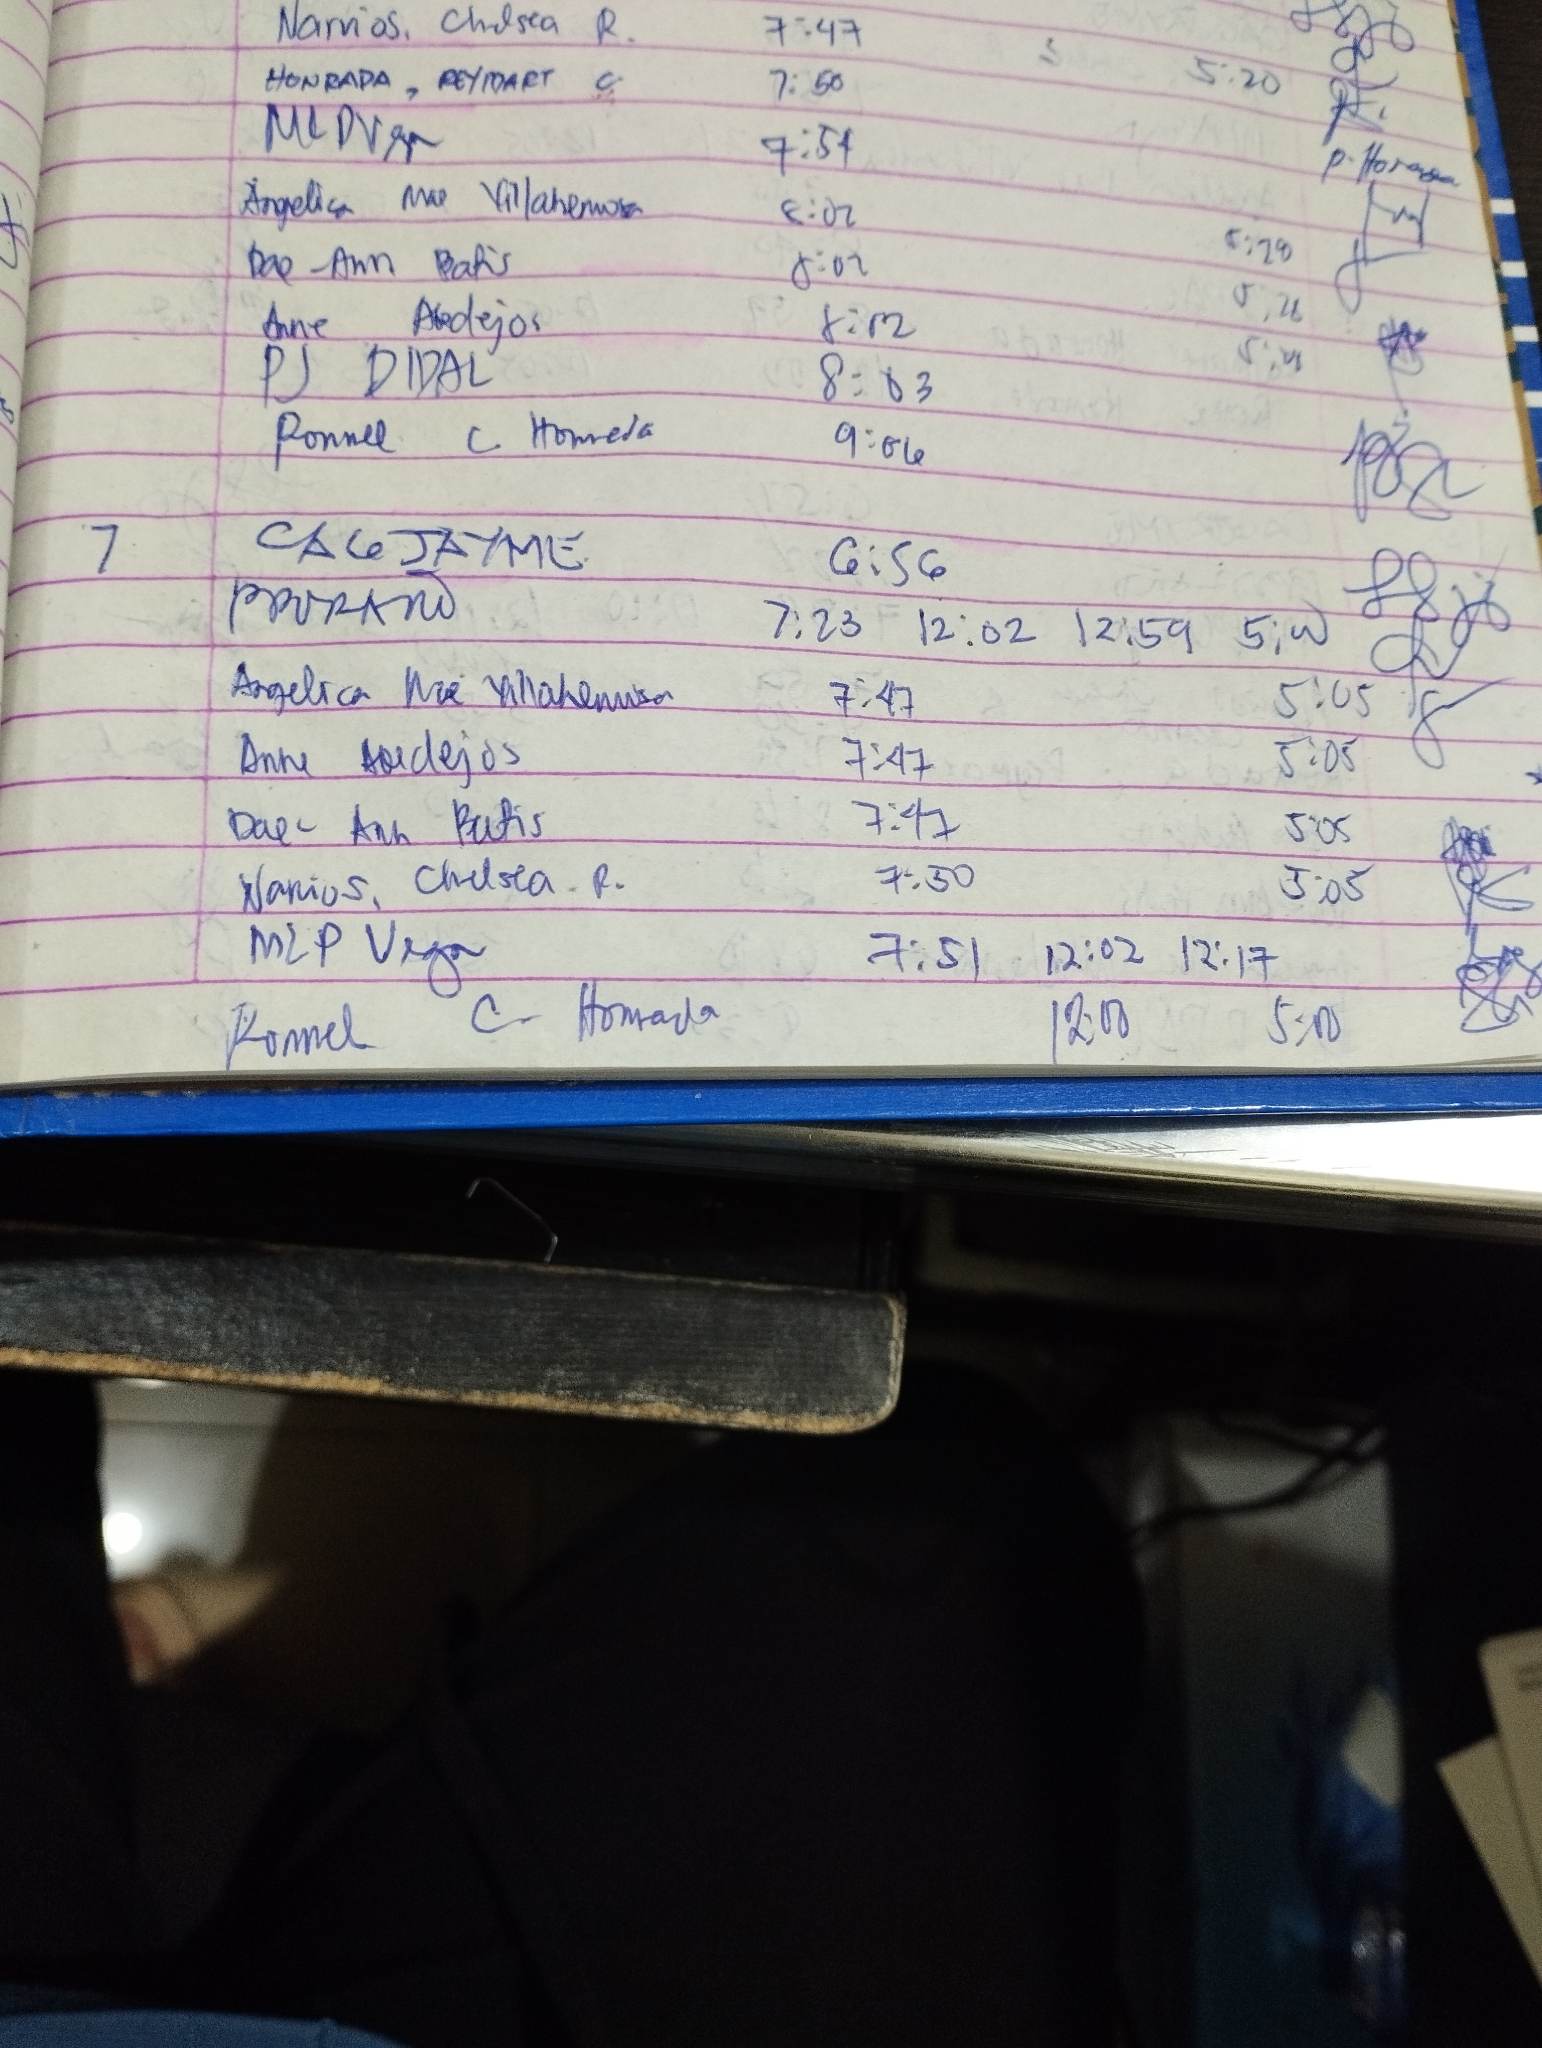 Narrios, Chelsea R. 7:47
HONRADA, REYMART C. 7:50 5:20
MLP Vega 7:51 P. Honrada
Angelica Mae Villahermosa 8:02 5:28
Dae-Ann Batis 8:02 5:28
Anne Abedejos 8:02
PJ DIDAL 8:03
Ronnel C Honrada 9:06
7 CAGJAYME 6:56
7:23 12:02 12:59
Angelica Mae Villahermosa 7:47 5:05
Anne Abedejos 7:47 5:05
Dae-Ann Batis 7:47 5:05
Narrios, Chelsea R. 7:50 5:05
MLP Vega 7:51 12:02 12:17
Ronnel C Honrada 12:00 5:00